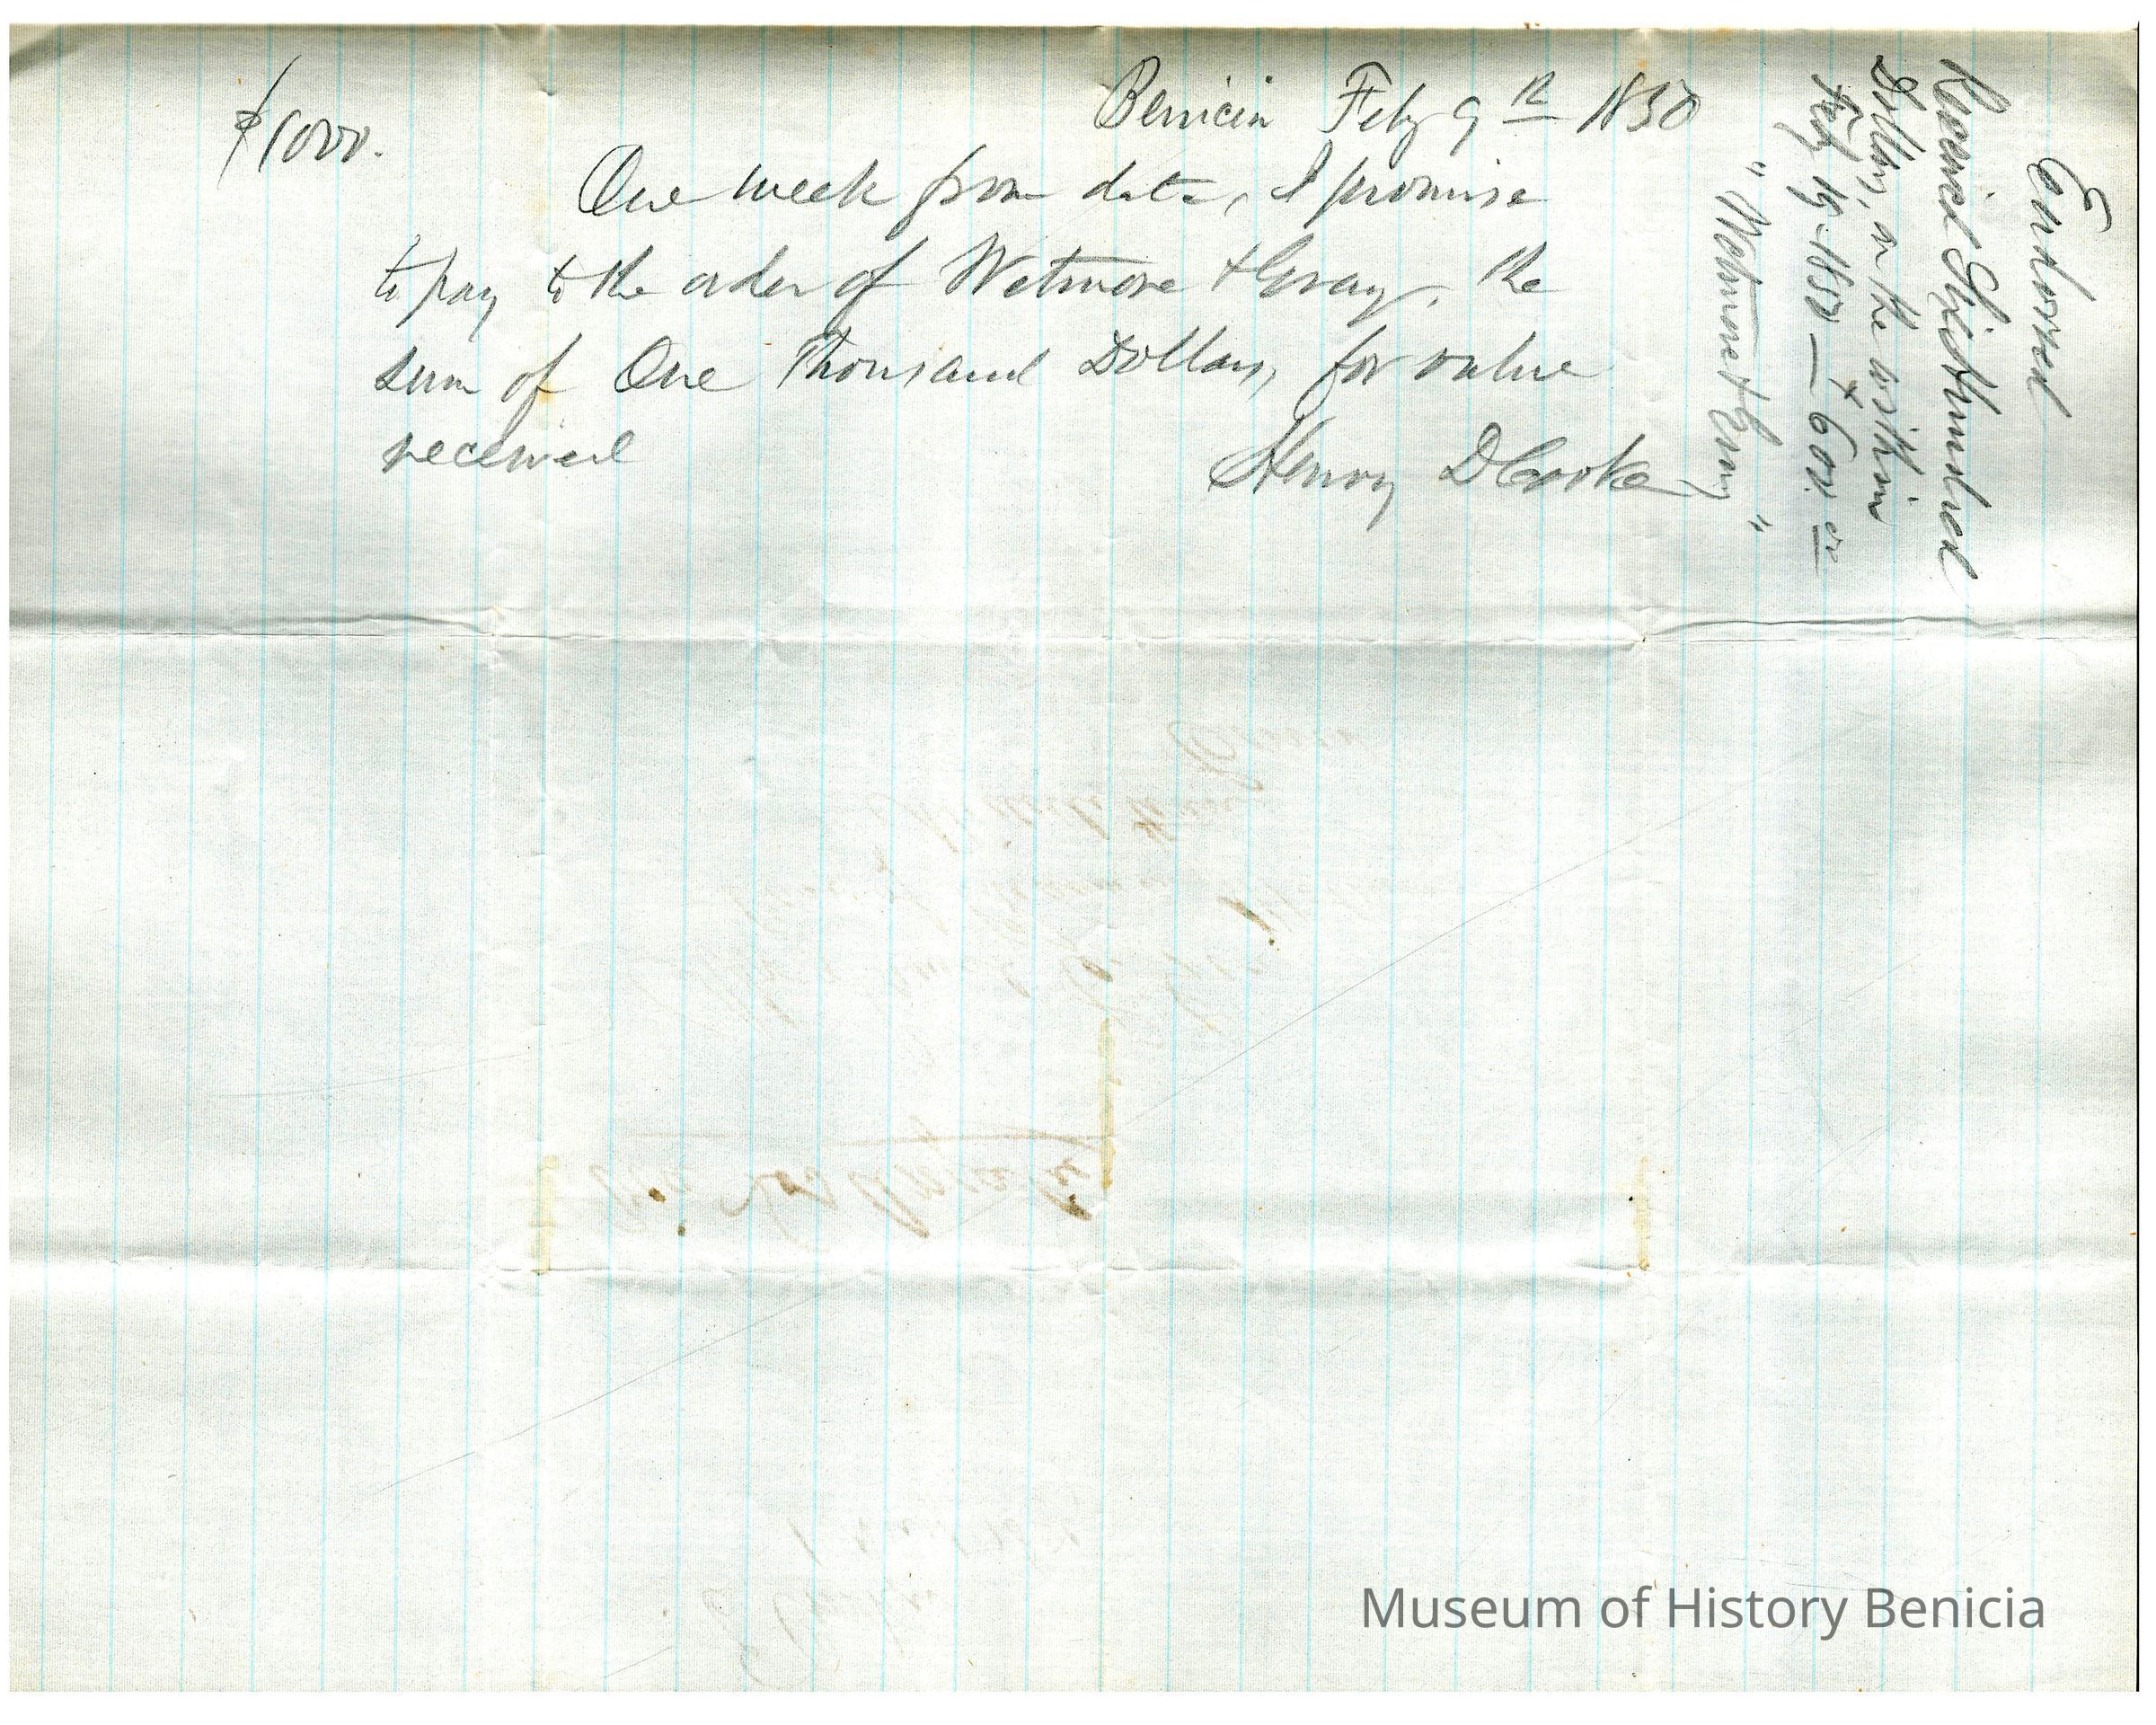 $1000.
Benicia Feby 9th 1850
One week from date, I promise
to pay to the order of Wetmore & Gray, the
sum of One Thousand Dollars, for value
received
Henry D Cooke
Endorsed
Received Six Hundred
Dollars, on the within
Feby 19. 1850 — $600.00
"Wetmore & Gray"
Museum of History Benicia